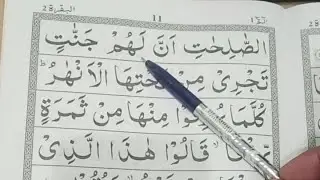 البقرة ٢ 11 الٓمّٓ ١
الصّٰلِحٰتِ اَنَّ لَهُمْ جَنّٰتٍ
تَجْرِیْ مِنْ تَحْتِهَا الْاَنْهٰرُ ؕ
كُلَّمَا مِنْهَا مِنْ ثَمَرَةٍ
قَالُوْا هٰذَا الَّذِیْ